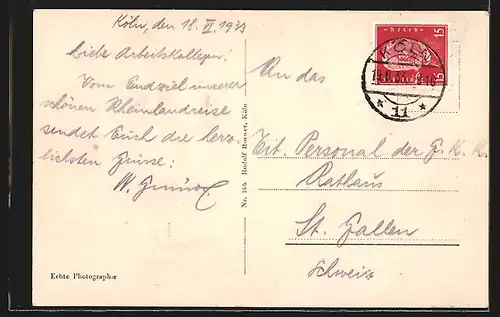 Köln, den 18. VI. 1933
Liebe Arbeitskollegen!
Vom Endziel unserer
schönen Rheinlandreise
sendet Euch die herz-
lichsten Grüsse:
W.
Echte Photographie
Nr. 166 Rudolf Roever, Köln
15 Reich 15
KÖLN
19.6.33
* 11 *
An das
Tit. Personal der G. K. K.
Rathaus
St. Gallen
Schweiz